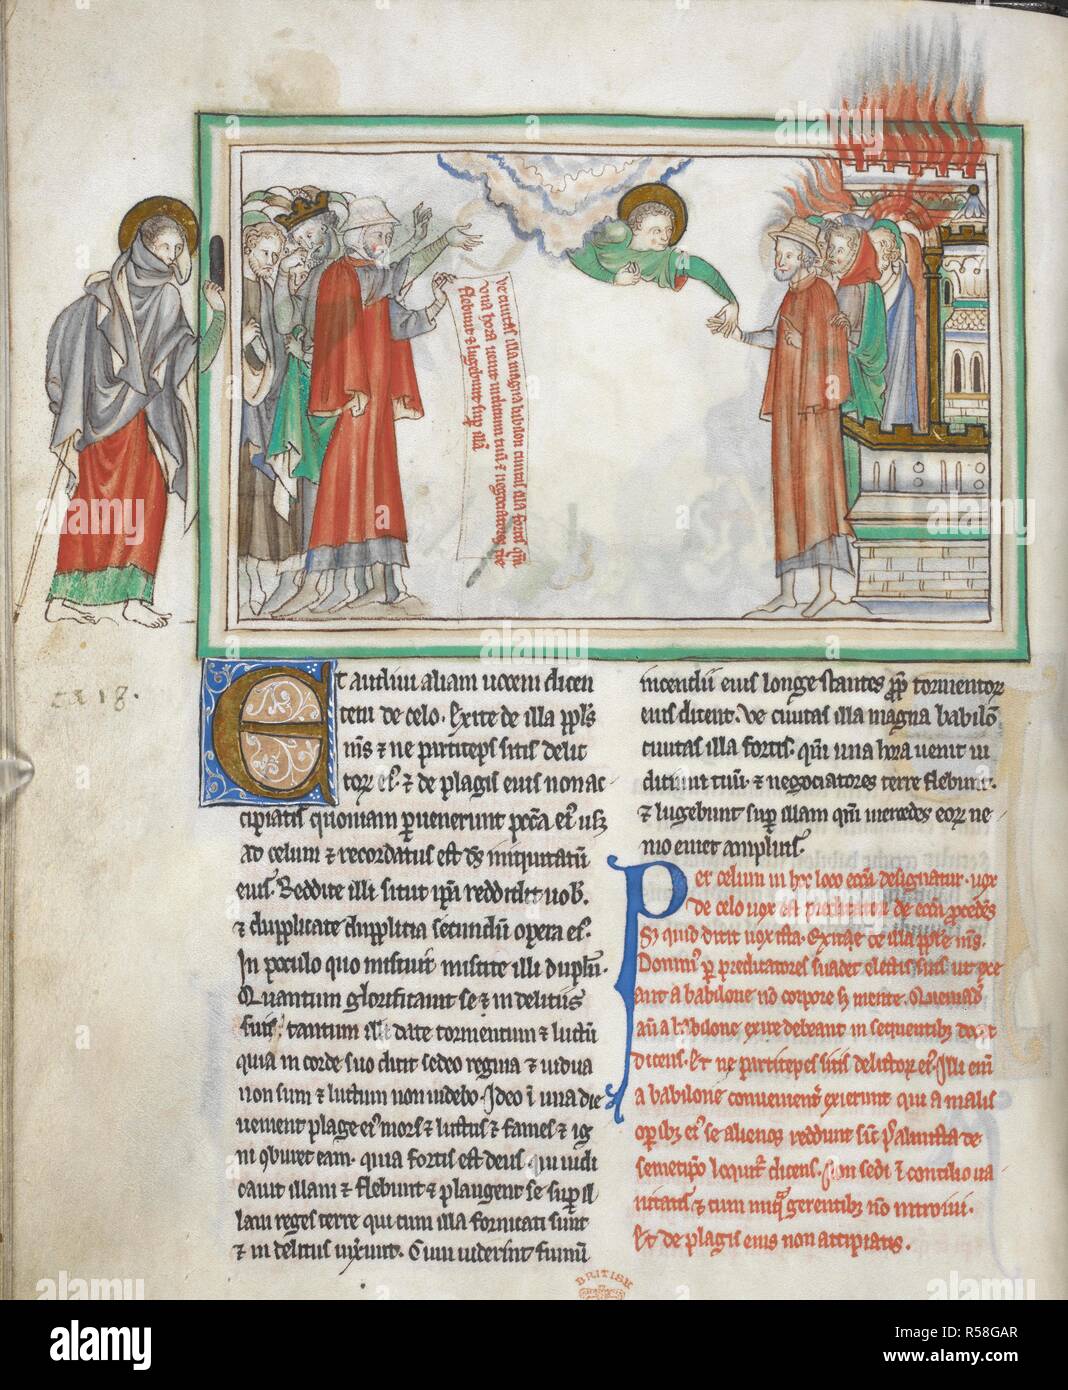 ve civitas illa magna babilon civitas illa fortis qm̄
una hora venit iudicium tuū ⁊ negociatores t͛re
flebunt ⁊ lugebunt sup͛ illā
ca 18.
Et audivi aliam vocem dicen
tem de celo. Exite de illa pp̄ls
m̄s ⁊ ne participes sitis delic
torꝝ ei᷒. ⁊ de plagis eius non ac
cipiatis quoniam pervenerunt pcc̄a ei᷒ usqꝫ
ad celum ⁊ recordatus est dn̄s iniquitatū
eius. Reddite illi sicut ip̄a reddidit vob̄.
⁊ dupplicate dupplicia secundū opera ei᷒.
In poculo quo miscuit miscite illi duplū.
Quantum glorificavit se ⁊ in deliciis
fuit. tantum illi date tormentum ⁊ luctū
quia in corde suo dicit sedeo regina ⁊ vidua
non sum ⁊ luctum non videbo. Ideo ī una die
venient plage ei᷒ mors ⁊ luctus ⁊ fames ⁊ ig
ni ꝯburet eam. quia fortis est deus qui iudi
cavit illam ⁊ flebunt ⁊ plangent se sup͛ il
lam reges terre qui cum illa fornicati sunt
⁊ in deliciis vixerunt. Cum viderint fumū
incendii eius longe stantes ꝓpt̄ tormentorꝝ
eius dicent. Ve civitas illa magna babilō
civitas illa fortis. qm̄ una hora venit iu
dicium tuū. ⁊ negociatores terre flebunt.
⁊ lugebunt sup͛ illam qm̄ mercedes eorꝝ ne
mo emet amplius.
Per celum in hoc loco ecc̄ia designatur. vox
de celo vox est predicatorꝝ de ecc̄ia procedēs
Sꝫ quid dicit vox ista. Exite de illa pp̄ls m̄s.
Domin᷒ per predicatores suadet electis suis ut exe
ant a babilone nō corpore sꝫ mente. Quemad
modū a babilone exire debeant in sequentibꝫ docet
dicens. Et ne participes sitis delictorꝝ ei᷒. Illi eni͛
a babilone convenient͛ exierunt qui a malis
operibꝫ ei᷒ se alienos reddunt sic͛ psalmista de
semetip̄o loquit͛ dicens. Non sedi ī concilio va
nitatis ⁊ cum iniqua gerentibꝫ nō introivi.
Et de plagis eius non accipiatis.
BRITISH
alamy
Image ID: R58GAR
www.alamy.com